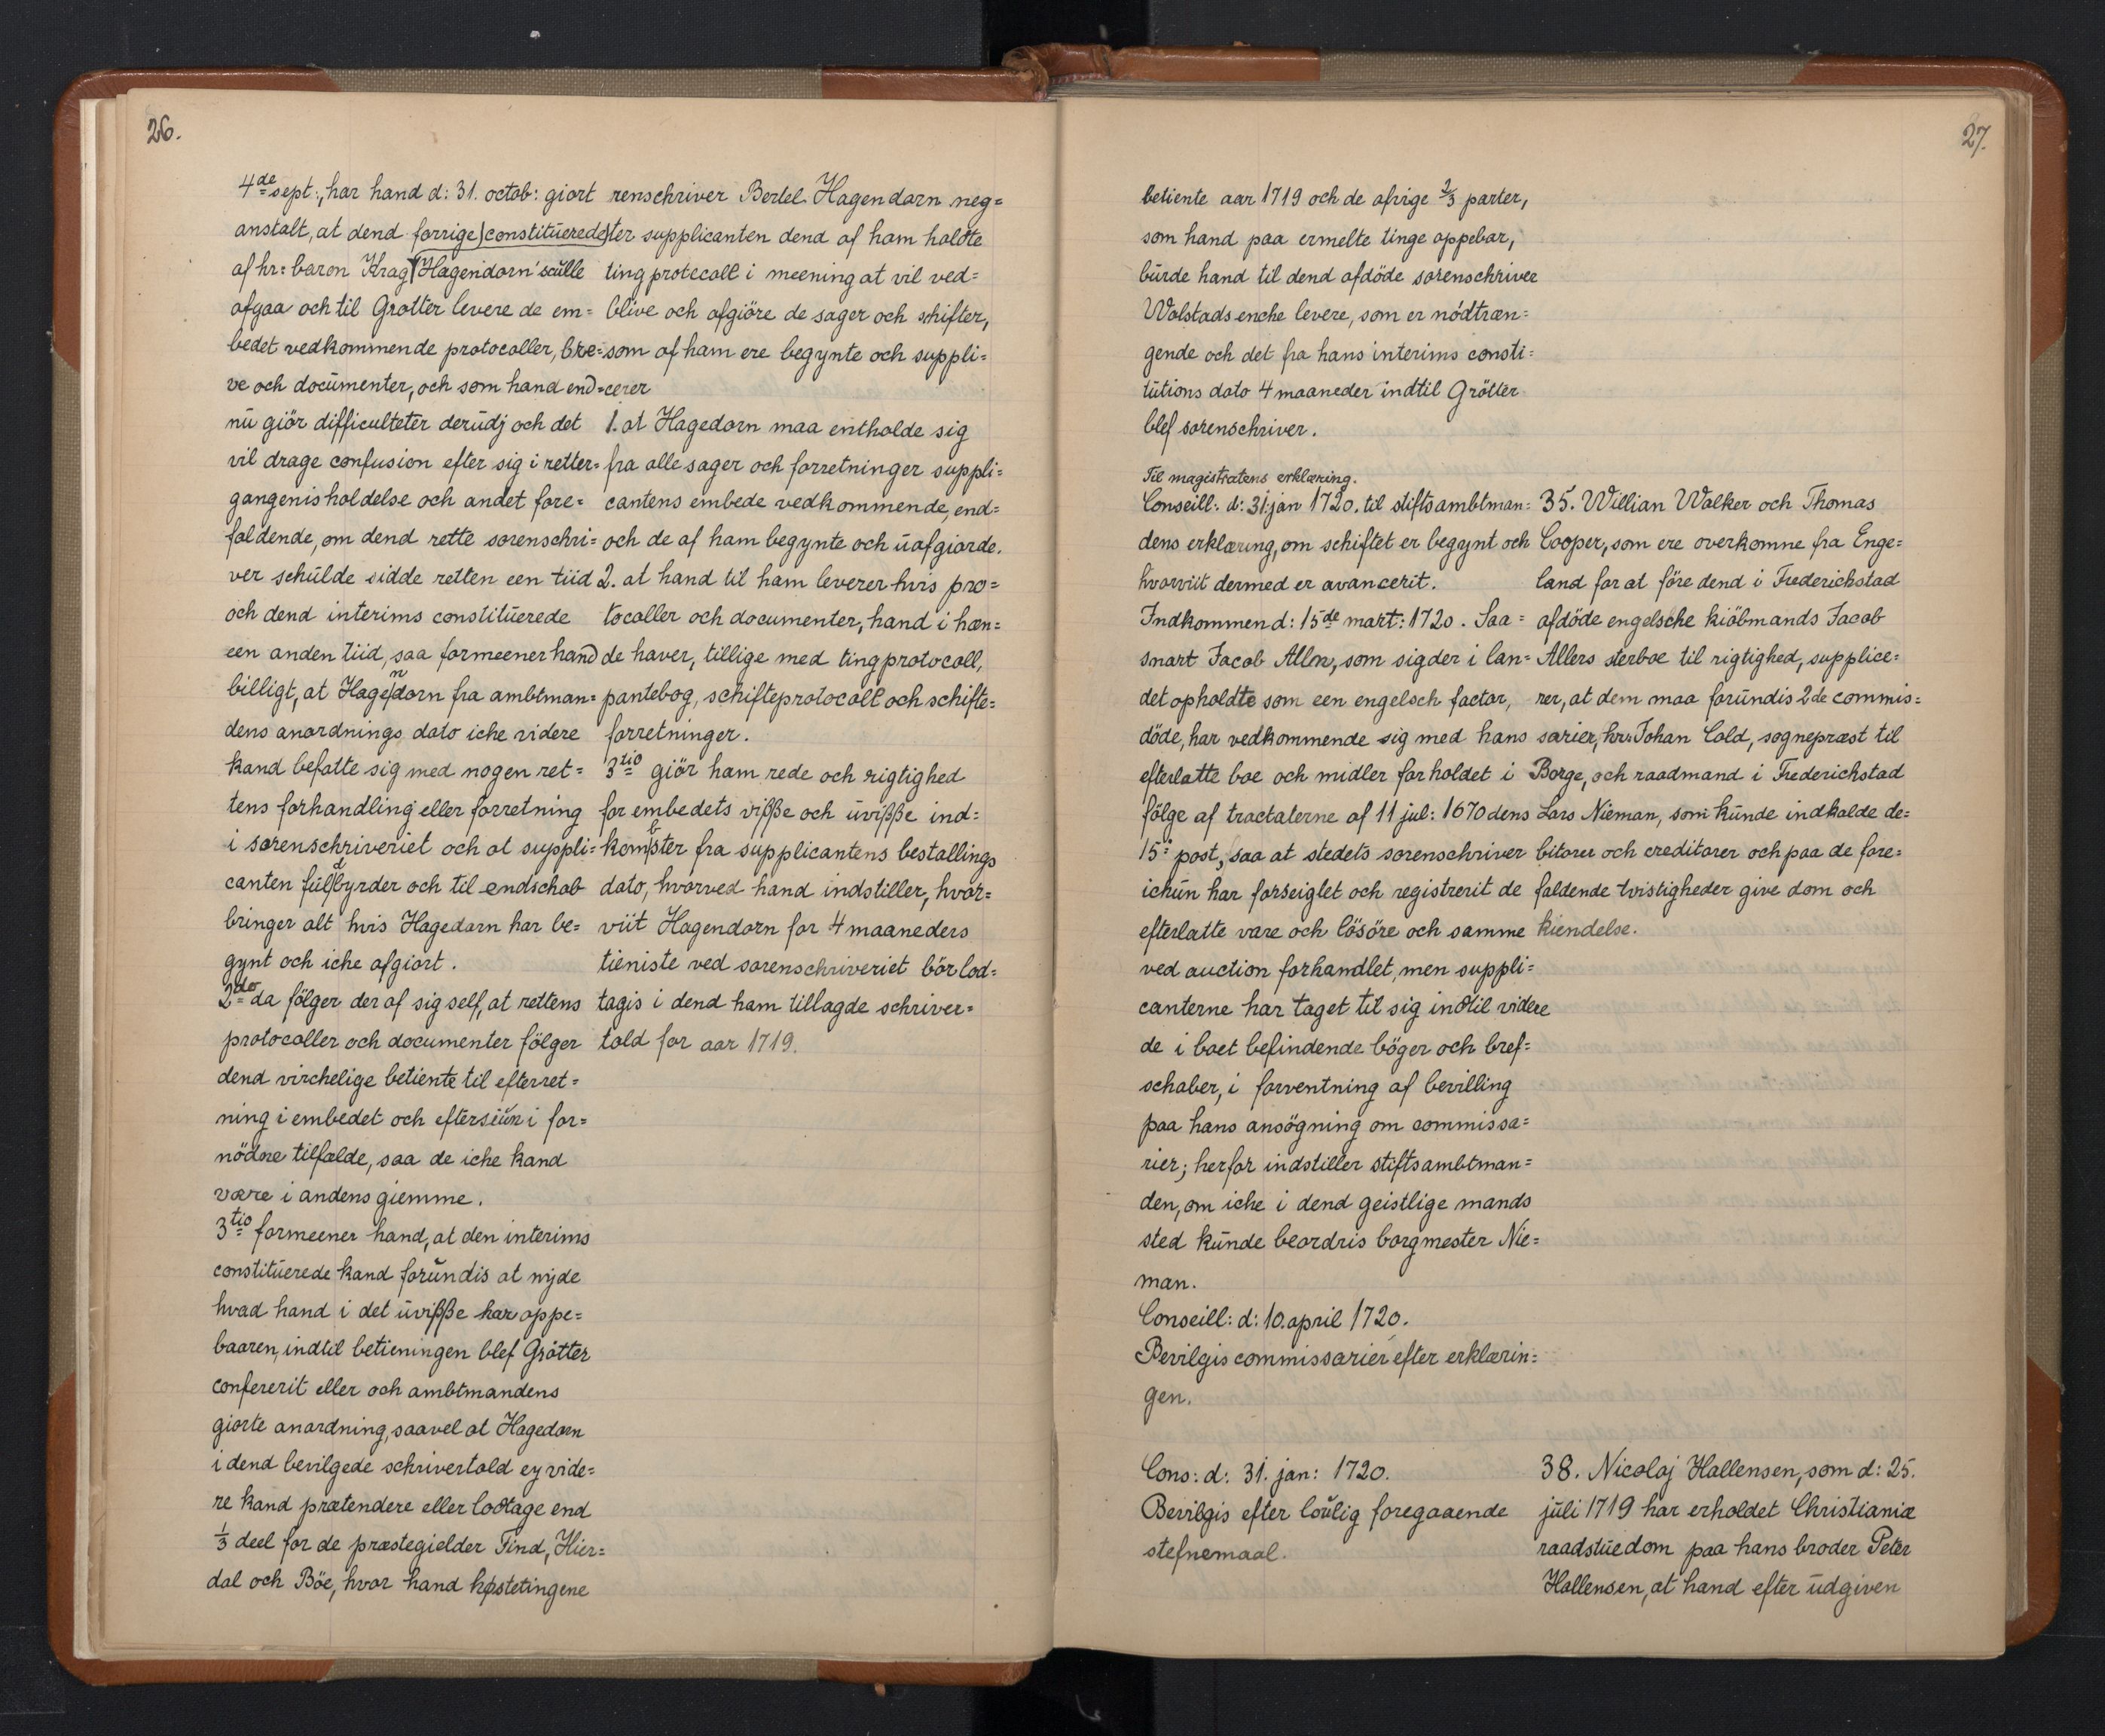 26.
4de sept:, har hand d: 31. octob: giort
anstalt, at dend forrige constituerede
af hr: baron Krag Hagendorn sculle
afgaa och til Grotter levere de em=
bedet vedkommende protocoller, bre=
ve och documenter, och som hand end=
nū giör difficulteter derūdj och det
vil drage confusion efter sig i retter=
gangenis holdelse och andet fore=
faldende, om dend rette sorenschri=
ver schūlde sidde retten een tiid
och dend interims constitūerede
een anden tiid, saa formeener hand
billigt, at Hagendorn fra ambtman=
dens anordnings dato iche videre
kand befatte sig med nogen ret=
tens forhandling eller forretning
i sorenschriveriet och at suppli=
canten fūldbyrder och til endschab
bringer alt hvis Hagedorn har be=
gynt och iche afgiort.
2do da fölger der af sig self, at rettens
protocoller och documenter fölger
dend virchelige betiente til efterret=
ning i embedet och eftersiūn i for=
nödne tilfælde, saa de iche kand
være i andens giemme.
3tio formeener hand, at den interims
constitūerede kand forūndis at nyde
hvad hand i det ūviſſe har oppe=
baaren, indtil betieningen blef Grötter
confererit eller och ambtmandens
giorte anordning, saavel at Hagedorn
i dend bevilgede schrivertold ey vide=
re kand prætendere eller lodtage end
1/3 deel for de præstegielder Tind, Hier=
dal och Böe, hvor hand høstetingene
renschriver Bertel Hagendorn neg=
ter supplicanten dend af ham holdte
ting protocoll i meening at vil ved=
blive och afgiöre de sager och schifter,
som af ham ere begynte och suppli=
cerer
1. at Hagedorn maa entholde sig
fra alle sager och forretninger suppli=
cantens embede vedkommende, end=
och de af ham begynte och ūafgiorde.
2. at hand til ham leverer hvis pro=
tocoller och documenter, hand i hæn=
de haver, tillige med tingprotocoll,
pantebog, schifteprotocoll och schifte=
forretninger.
3tio giör ham rede och rigtighed
for embedets viſſe och ūviſſe ind=
kombster fra supplicantens bestallings
dato, hvorved hand indstiller, hvor=
viit Hagendorn for 4 maaneders
tieniste ved sorenschriveriet bör lod=
tagis i dend ham tillagde schriver=
told for aar 1719.
27.
betiente aar 1719 och de øfrige 2/3 parter,
som hand paa ermelte tinge oppebar,
būrde hand til dend afdöde sorenschriver
Wolstads enche levere, som er nödtræn=
gende och det fra hans interims consti=
tūtions dato 4 maaneder indtil Grötter
blef sorenschriver.
Til magistratens erklæring.
Conseill: d: 31. jan 1720. til stiftsambtman=
dens erklæring, om schiftet er begynt och
hvorviit dermed er avancerit.
Indkommen d: 15de mart: 1720. Saa=
snart Jacob Aller, som sig der i lan=
det opholdte som een engelsch factor,
döde, har vedkommende sig med hans
efterlatte boe och midler forholdet i
fölge af tractaterne af 11 jul: 1670 dens
15: post, saa at stedets sorenschriver
ickūn har forseiglet och registrerit de
efterlatte vare och lösöre och samme
ved auction forhandlet, men suppli=
canterne har taget til sig indtil videre
de i boet befindende böger och bref=
schaber, i forventning af bevilling
paa hans ansögning om commissa=
rier; herfor indstiller stiftsambtman=
den, om iche i dend geistlige mands
sted kūnde beordris borgmester Nie=
man.
Conseill: d: 10. april 1720.
Bevilgis commissarier efter erklærin=
gen.
35. Willian Walker och Thomas
Cooper, som ere overkomne fra Enge=
land for at före dend i Frederichstad
afdöde engelsche kiöbmands Jacob
Allers sterboe til rigtighed, supplice=
rer, at dem maa forūndis 2de commis=
sarier, hr: Johan Cold, sognepræst til
Borge, och raadmand i Frederichstad
Lars Nieman, som kūnde indkalde de=
bitorer och creditorer och paa de fore=
faldende tvistigheder give dom och
kiendelse.
Cons: d: 31. jan: 1720.
Bevilgis efter lovlig foregaaende
stefnemaal.
38. Nicolaj Hallensen, som d: 25.
jūli 1719 har erholdet Christianiæ
raadstūedom paa hans broder Peter
Hallensen, at hand efter ūdgiven